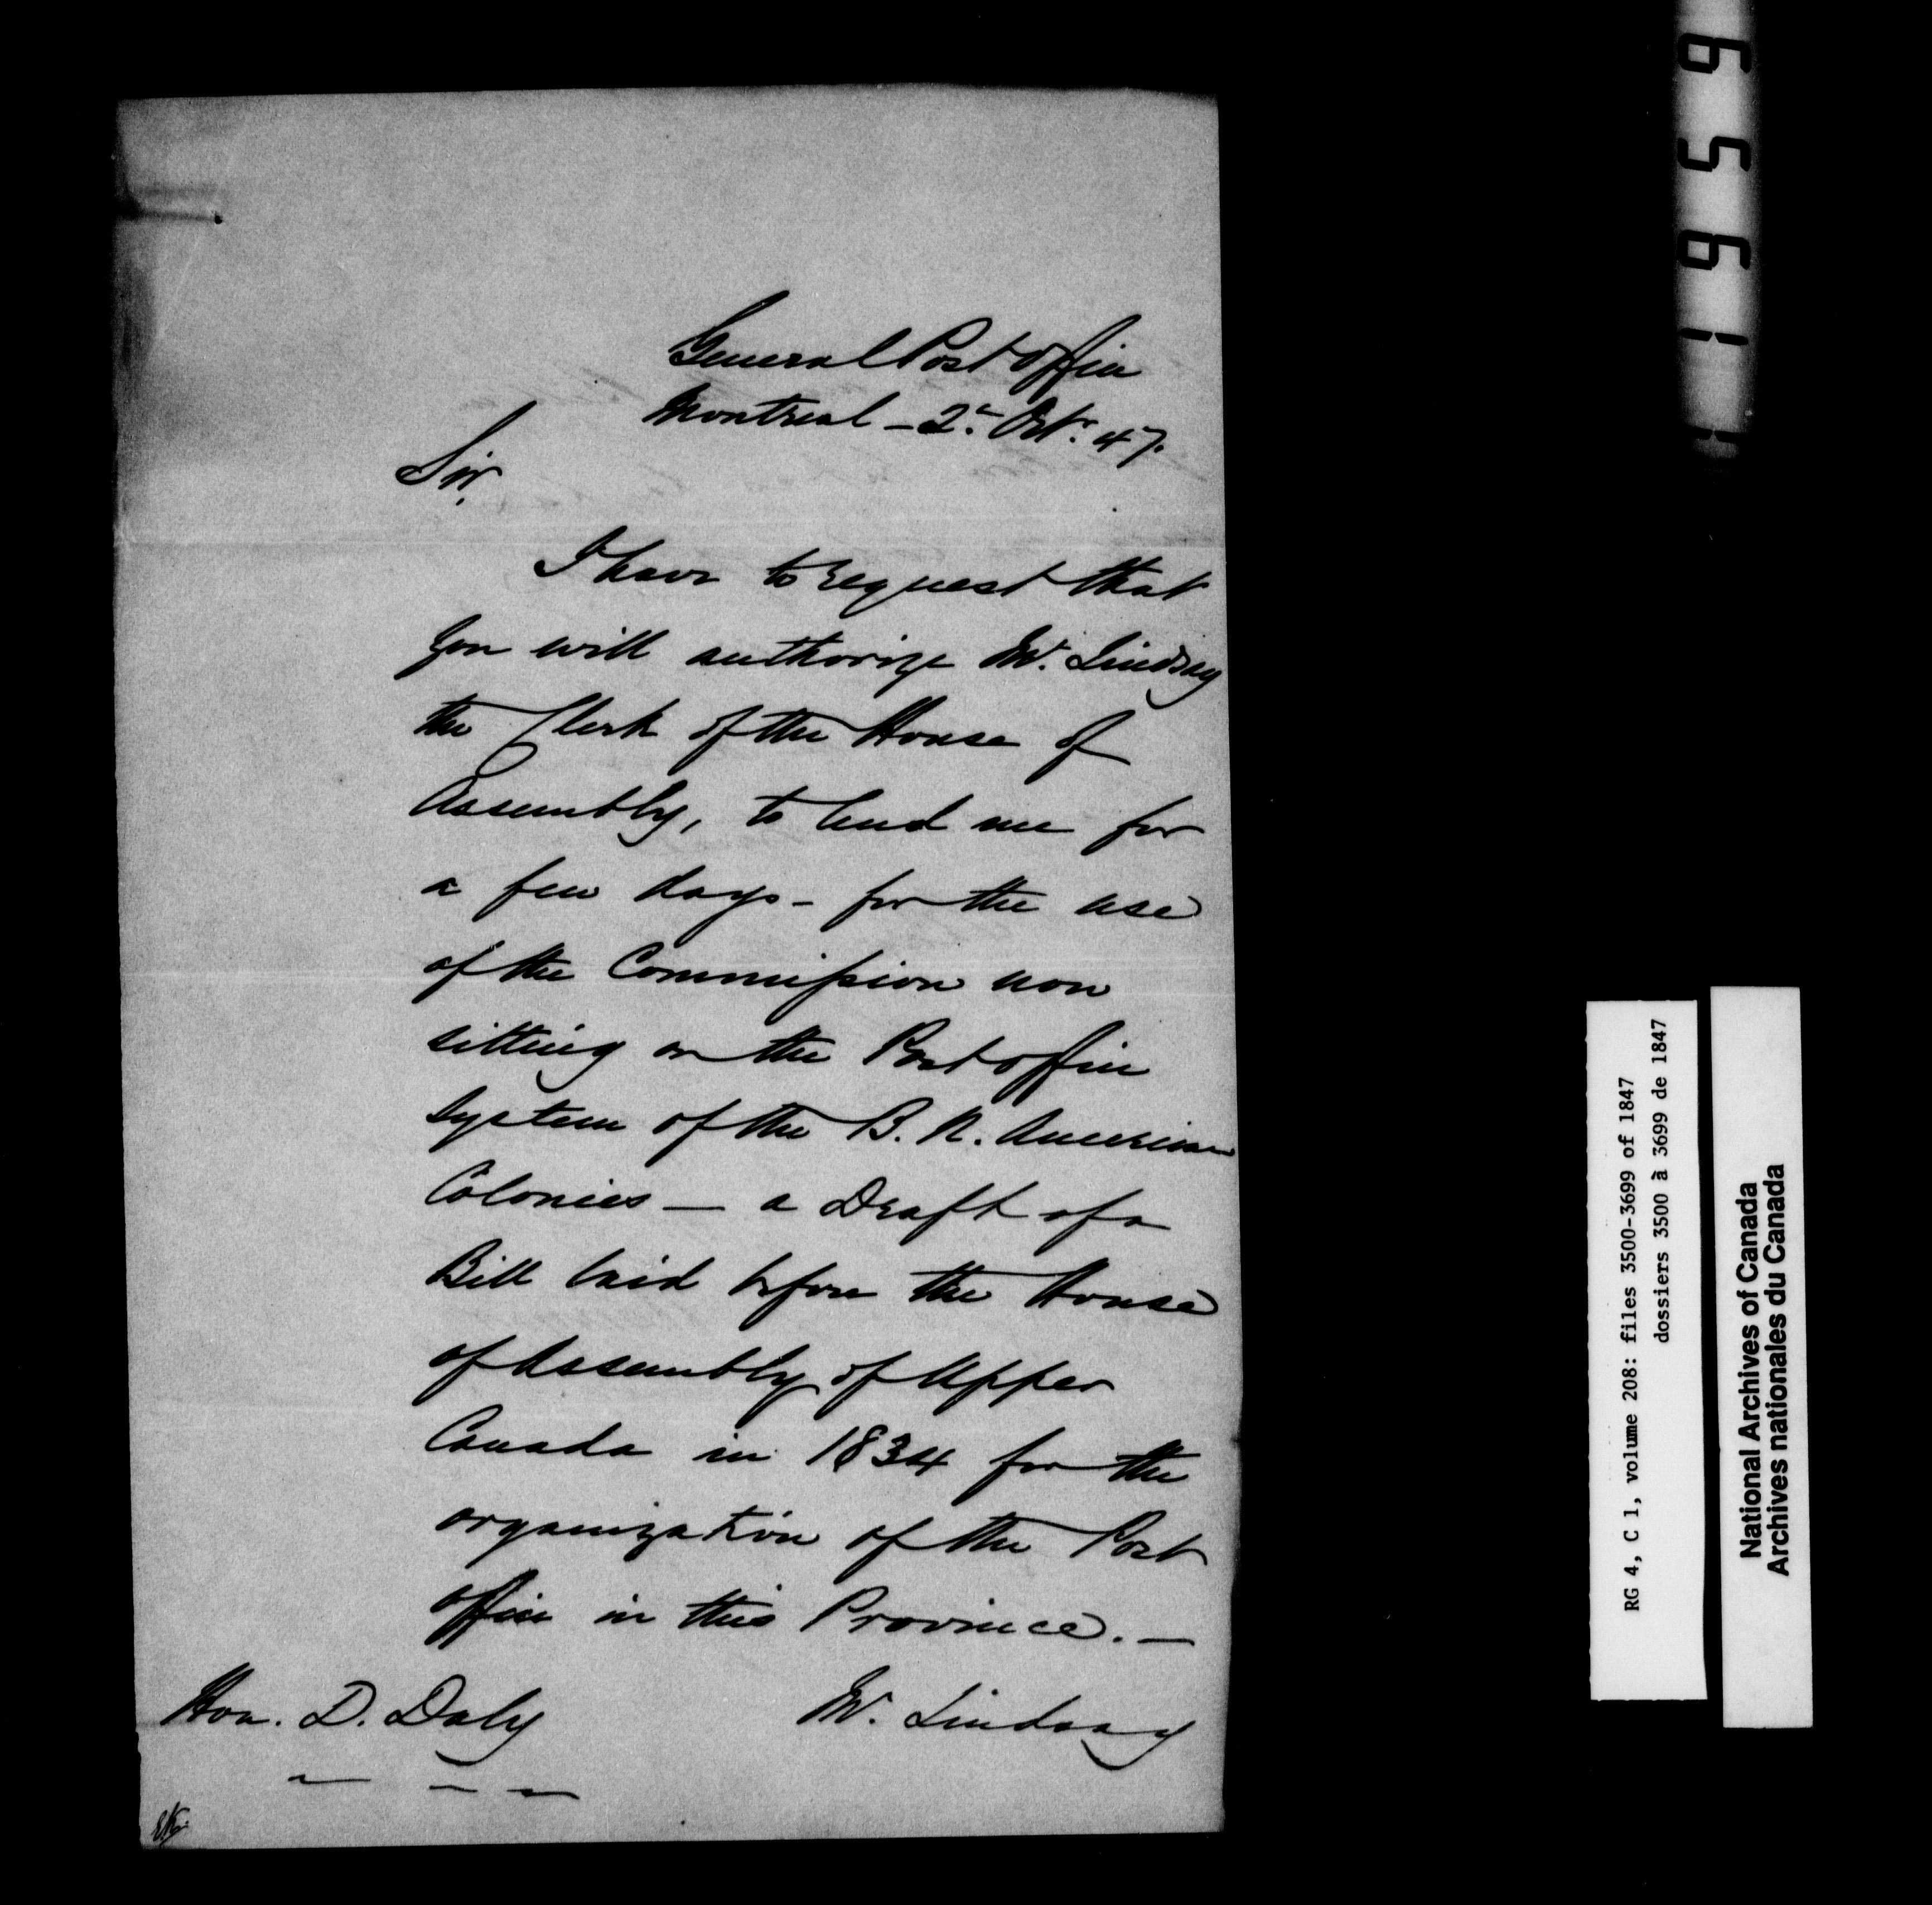 General Post Office
Montreal - 2d. Octr. 47.
Sir,
I have to request that
you will authorize Mr. Lindsay
the Clerk of the House of
Assembly, to lend me for
a few days - for the use
of the Commission now
sitting on the Post office
system of the B. N. American
Colonies — a Draft of a
Bill laid before the House
of Assembly of Upper
Canada in 1834 for the
organization of the Post
office in this Province. —
Hon. D. Daly
Mr. Lindsay
RG 4, C 1, volume 208: files 3500-3699 of 1847
dossiers 3500 à 3699 de 1847
National Archives of Canada
Archives nationales du Canada